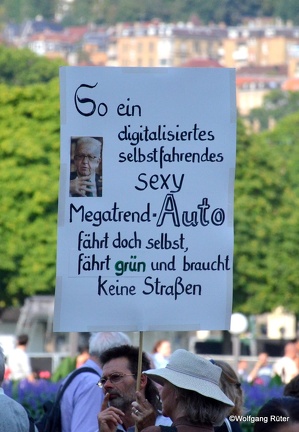 So ein
digitalisiertes
selbstfahrendes
sexy
Megatrend-Auto
fährt doch selbst,
fährt grün und braucht
Keine Straßen
©Wolfgang Rüter